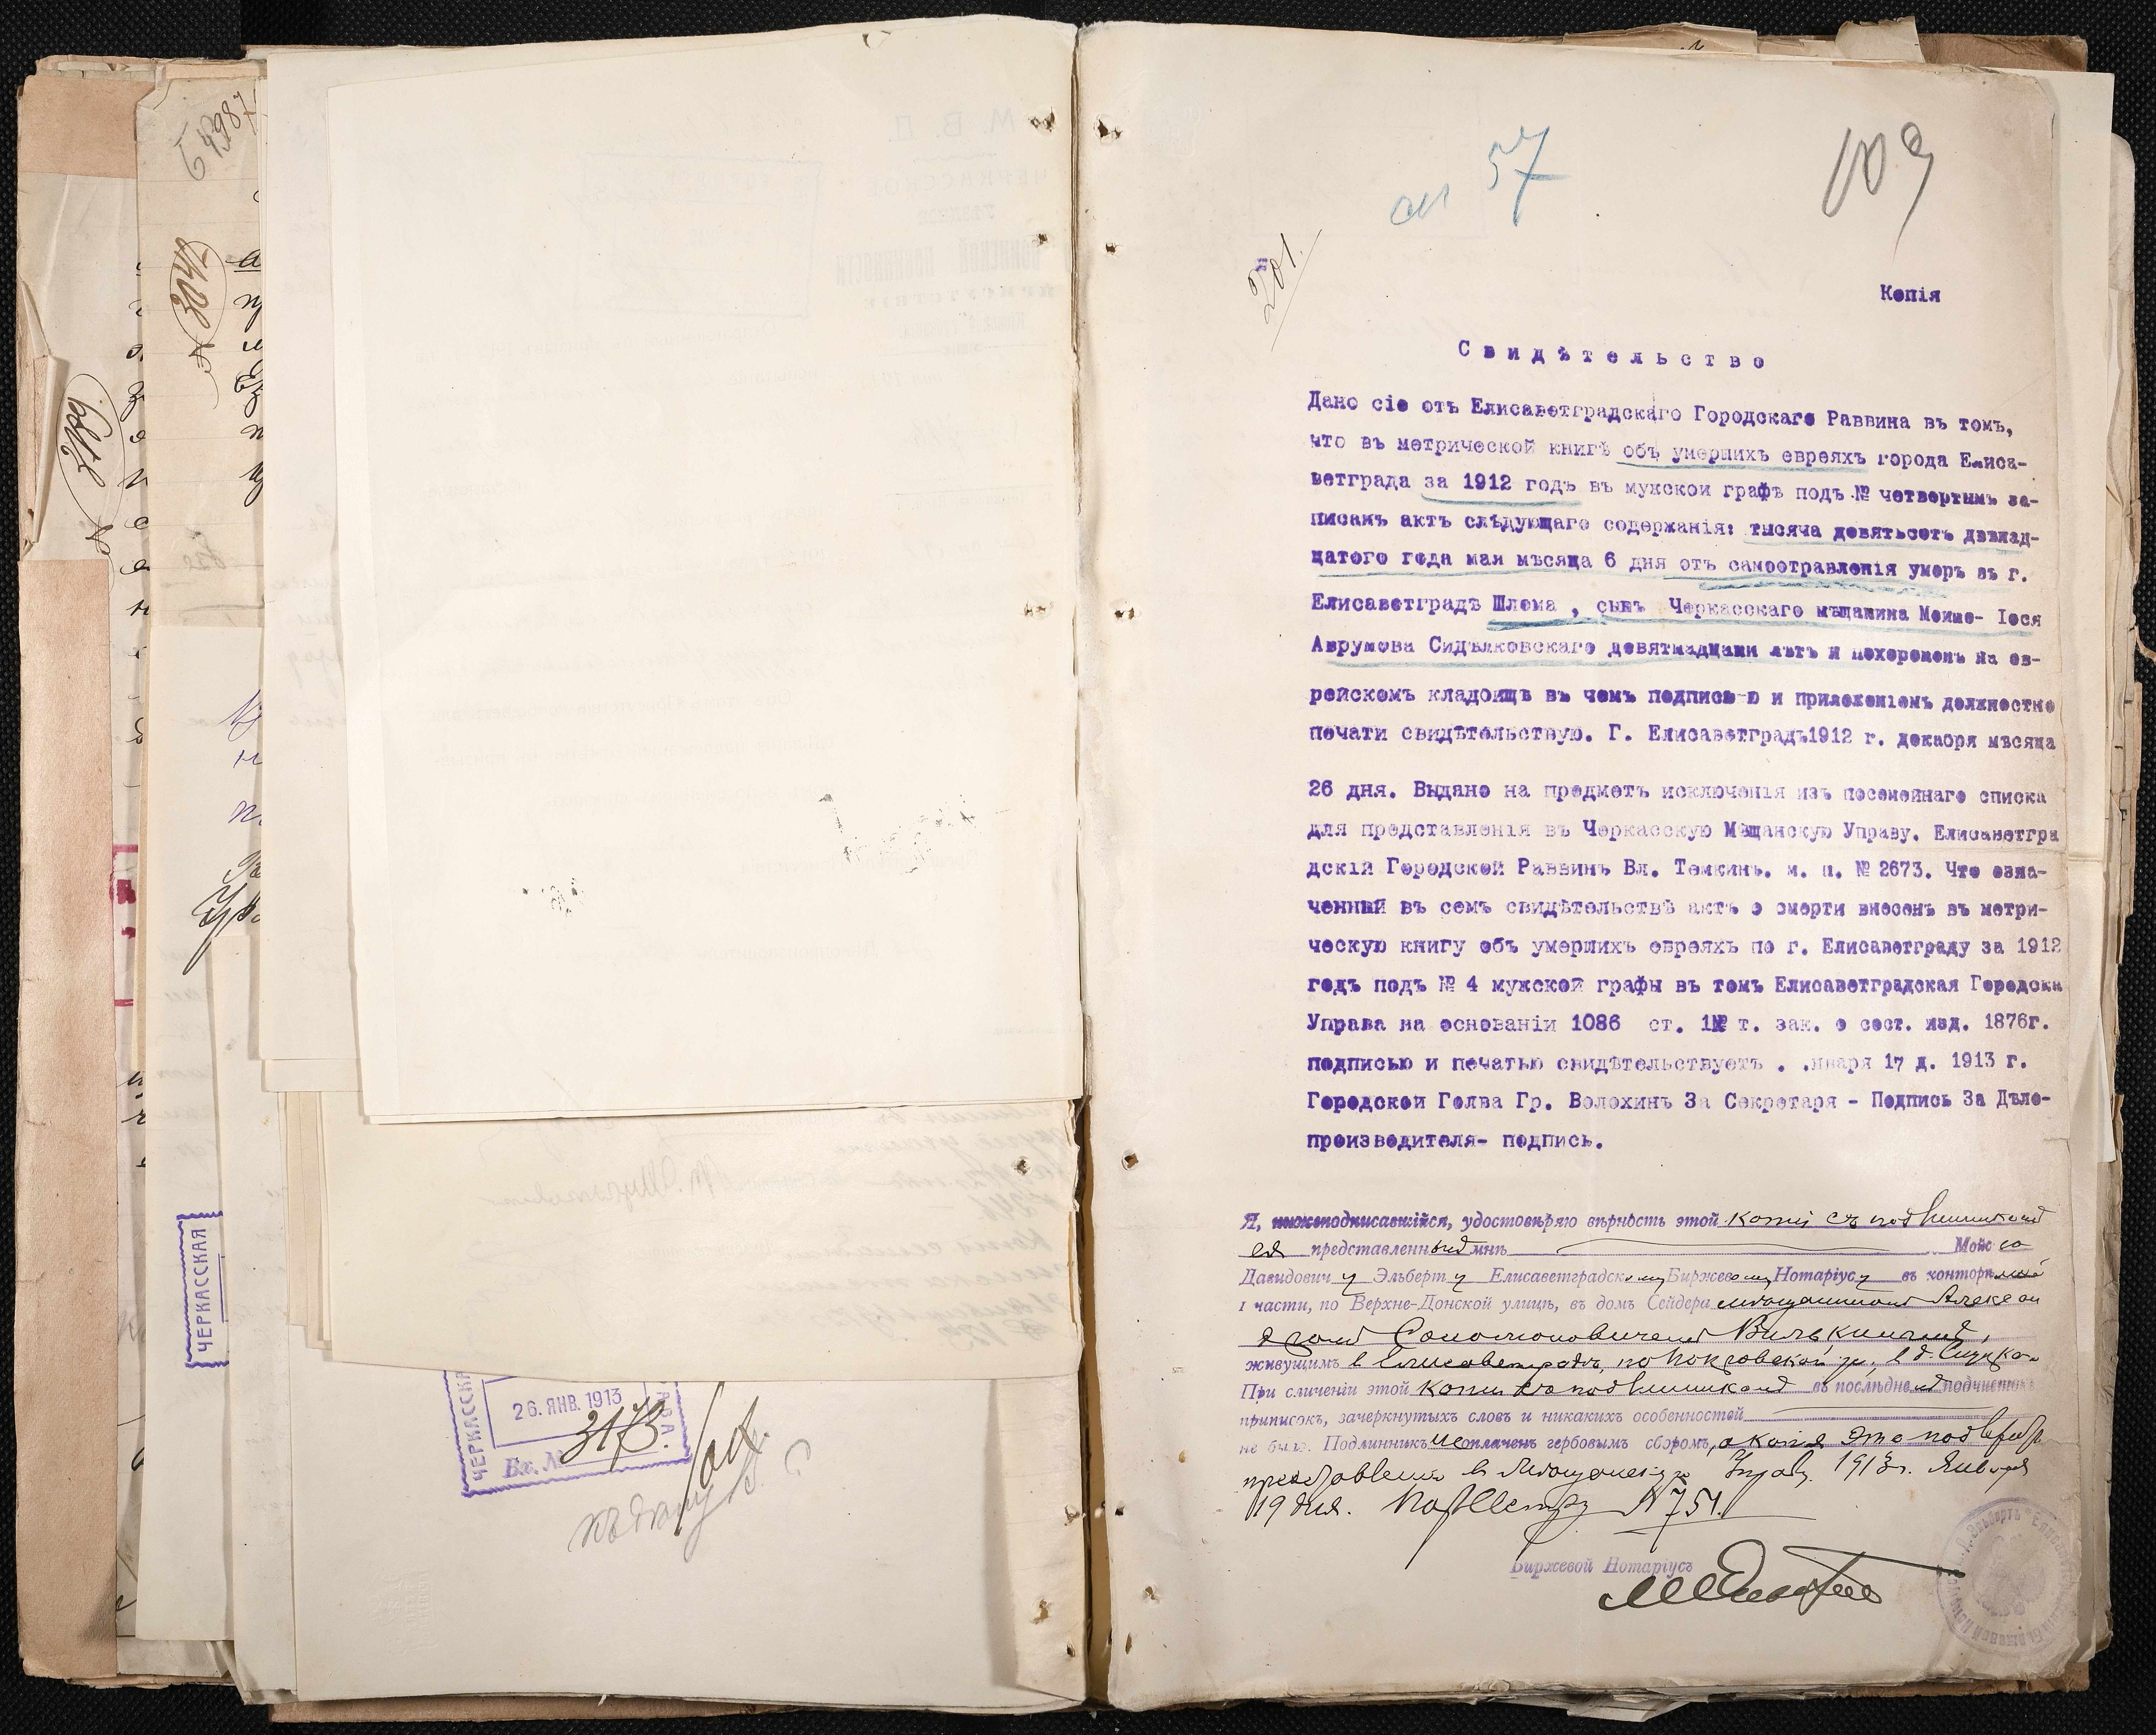 4987
№ 3042
№ 3166
ЧЕРКАССКАЯ
26. ЯНВ. 1913
Вх. № 3173.
ел 57
109
201.
Копія
Свидѣтельство
Дано сіе отъ Елисаветградскаго Городскаго Раввина въ томъ,
что въ метрической книгѣ объ умершихъ евреяхъ города Елиса-
ветграда за 1912 годъ въ мужской графѣ подъ № четвертымъ за-
писанъ актъ слѣдующаго содержанія: тысяча девятьсотъ двѣнад-
цатого года мая мѣсяца 6 дня отъ самоотравленія умеръ въ г.
Елисаветградѣ Шлема , сынъ Черкасскаго мѣщанина Моише- Іося
Аврумова Сидѣлковскаго девятнадцати лѣтъ и похороненъ на ев-
рейскомъ кладбищѣ въ чемъ подписью и приложеніемъ должностно
печати свидѣтельствую. Г. Елисаветградъ1912 г. декабря мѣсяца
26 дня. Выдано на предметъ исключенія изъ посемейнаго списка
для представленія въ Черкасскую Мѣщанскую Управу. Елисаветгра
дскій Городской Раввинъ Вл. Темкинъ. м. п. № 2673. Что озна-
ченный въ семъ свидѣтельствѣ актъ о смерти внесенъ въ метри-
ческую книгу объ умершихъ евреяхъ по г. Елисаветграду за 1912
годъ подъ № 4 мужской графы въ томъ Елисаветградская Городска
Управа на основаніи 1086 ст. т. зак. о сост. изд. 1876г.
подписью и печатью свидѣтельствуетъ . .нваря 17 д. 1913 г.
Городской Голва Гр. Волохинъ За Секретаря - Подпись За Дѣло-
производителя- подпись.
Я, нижеподписавшійся, удостовѣряю вѣрность этой копіи съ подлинникомъ
ея представленнымъ мнѣ Мойсею
Давидовичу Эльберту Елисаветградскому Биржевому Нотаріусу въ конторѣ моей
1 части, по Верхне-Донской улицѣ, въ домѣ Сейдера мѣщаниномъ Алексан
дромъ Соломоновичемъ Вилькинымъ,
живущимъ в Елисаветградѣ, по Покровской ул., в д.
При сличеніи этой копіи съ подлинникомъ въ послѣднемъ подчистокъ
приписокъ, зачеркнутыхъ словъ и никакихъ особенностей
не было. Подлинникъ неоплаченъ гербовымъ сборомъ, а копія эта подлежитъ
представленію в Мѣщанскую Управу. 1913 г. Января
19 дня. По реестру № 751.
Биржевой Нотаріусъ